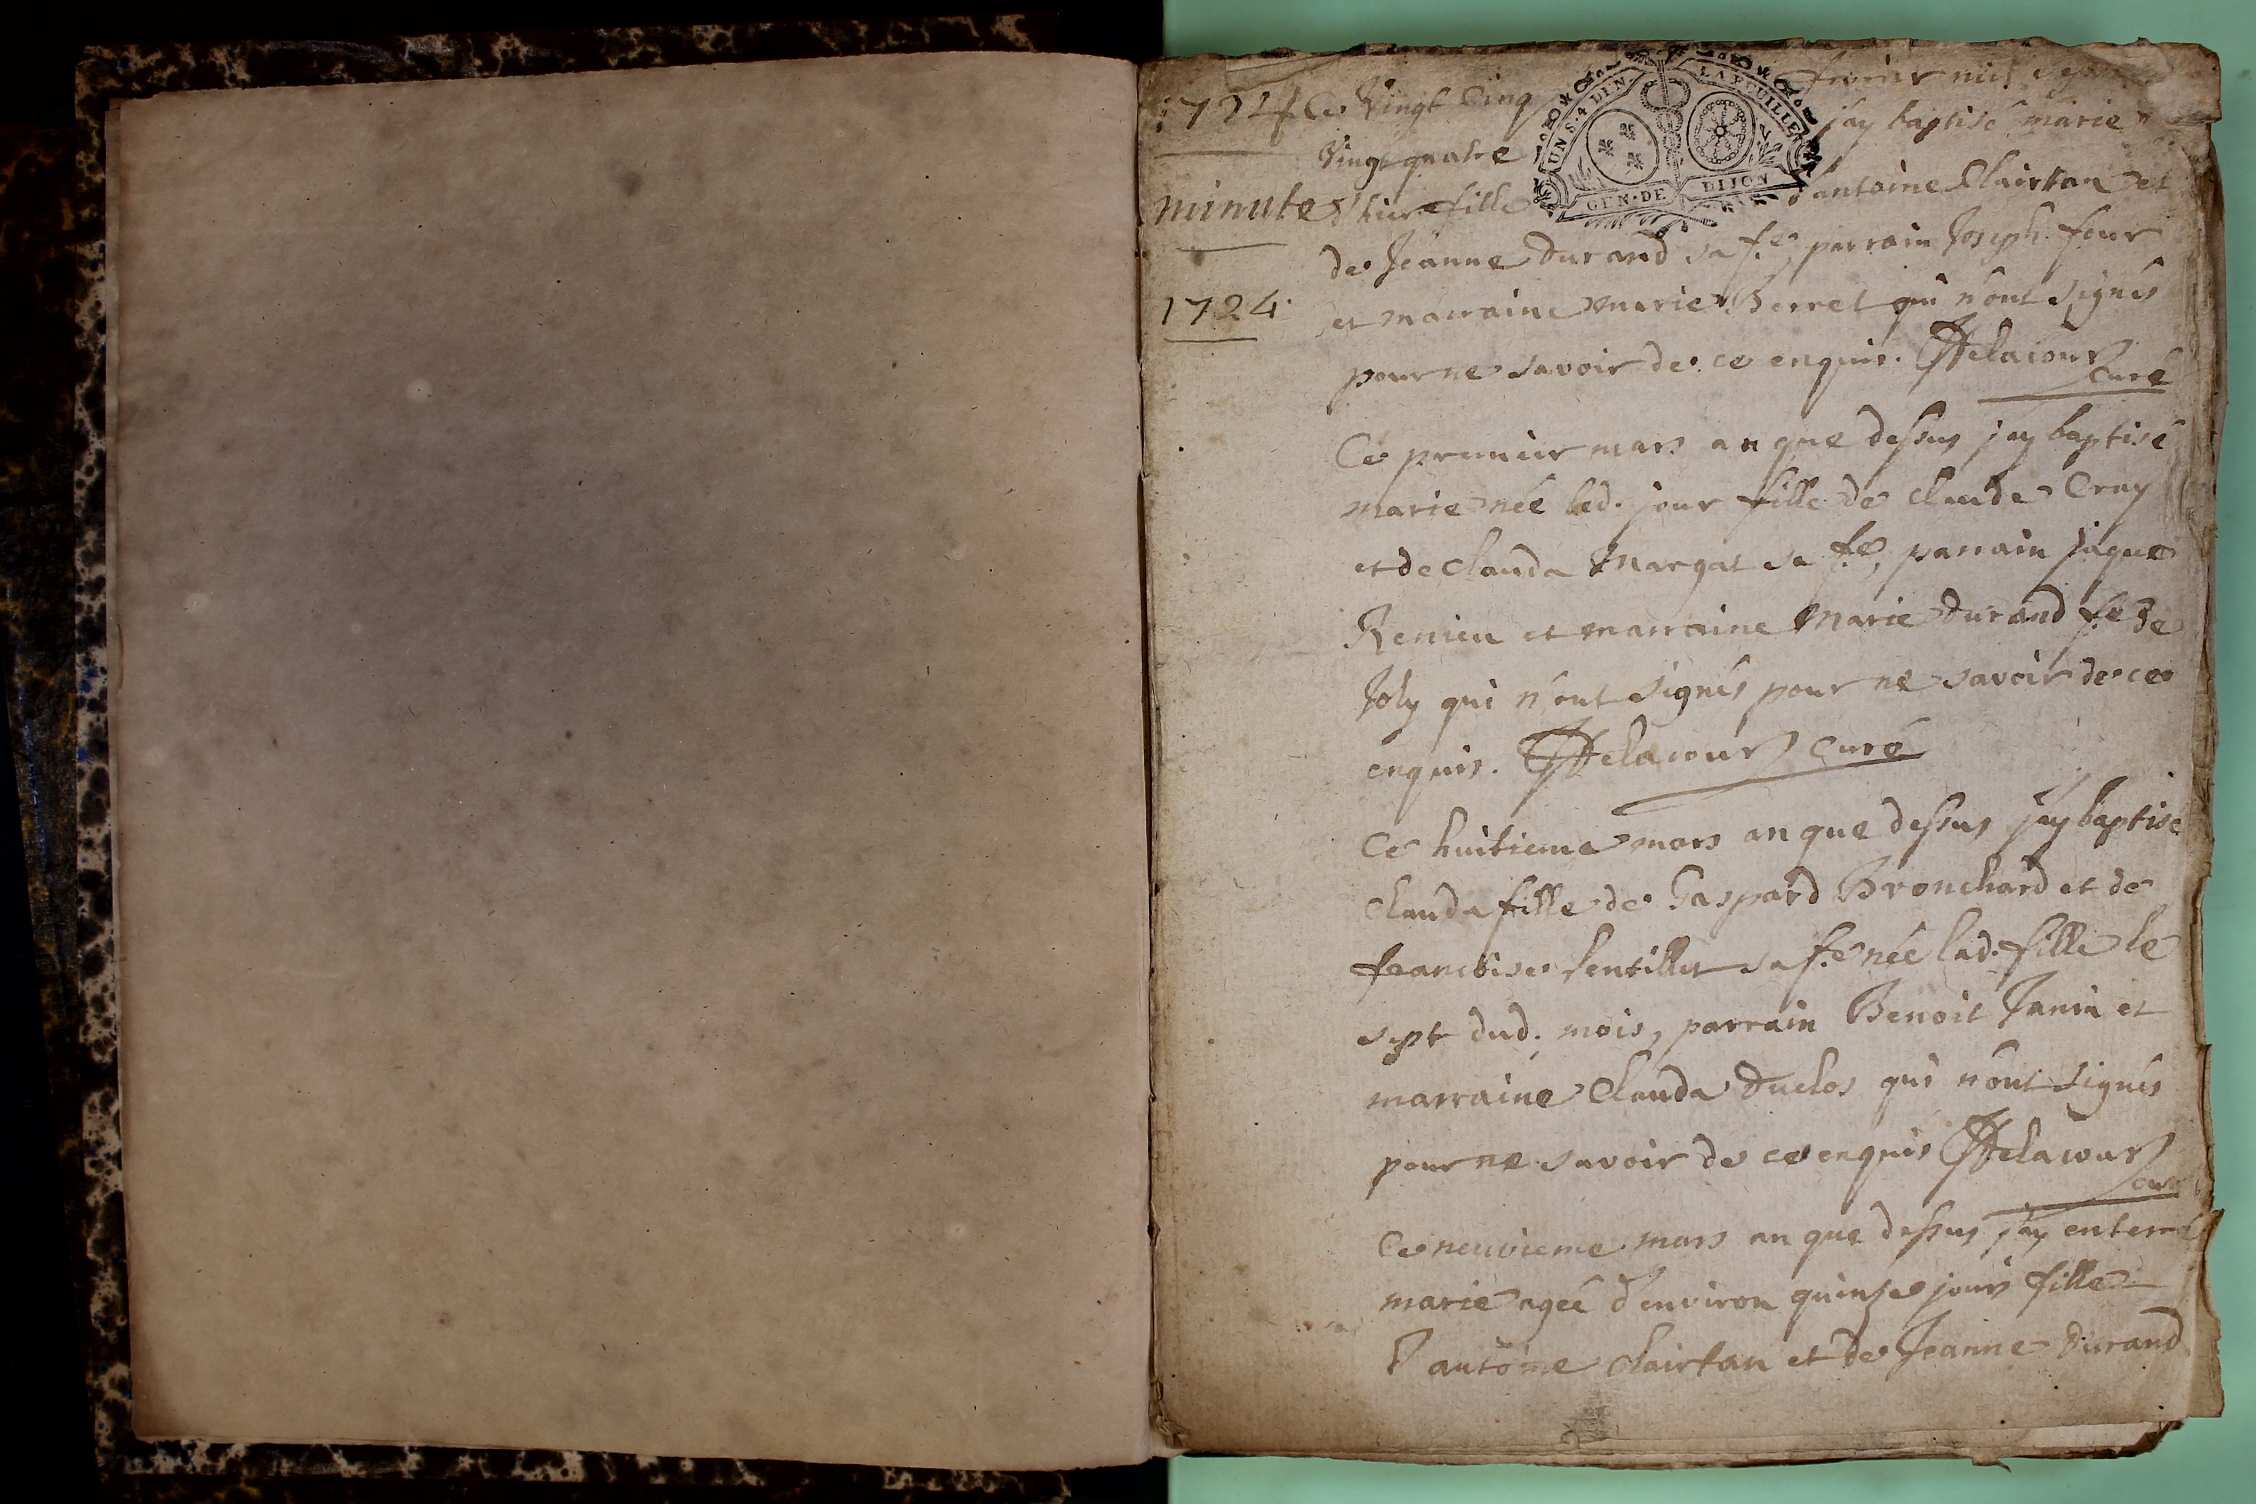 1724 Ce Vingt Cinq fevrier mil sept
Vingt quatre j'ay baptisé marie
minute d'hier fille d'antoine Clairtan et
de Jeanne Durand sa fe, parrain Joseph four
1724. et marraine marie Berret qui n'ont signés
pour ne savoir de ce enquis. Delacour
curé
Ce premier mars an que dessus j'ay baptisé
marie née led. jour fille de Claude Cray
et de Clauda Margat sa fe, parrain Jaque
Renieu et marraine Marie Durand fe De
Joly qui n'ont signés pour ne savoir de ce
enquis. Delacour curé
Ce huitieme mars an que dessus j'ay baptisé
Clauda fille de Gaspard Bronchard et de
francoise Lentillet sa fe née lad. fille le
sept dud. mois, parrain Benoit Janin et
marraine Clauda Duclos qui n'ont signés
pour ne savoir de ce enquis Delacour
curé
Ce neuvieme mars an que dessus j'ay enterré
marie agée d'environ quinze jours fille
D'antoine Clairtan et de Jeanne Durand
UN S. 4 DEN. LA FEUILLE
GEN. DE DIJON